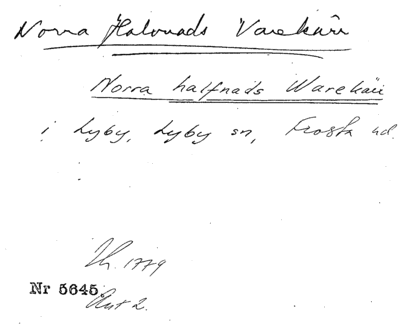 Norra Halvnads Varekärr
Norra halfnads Warekärr
i Lyby, Lyby sn, Frosta hd.
1779
Nr 5645
Akt 2.